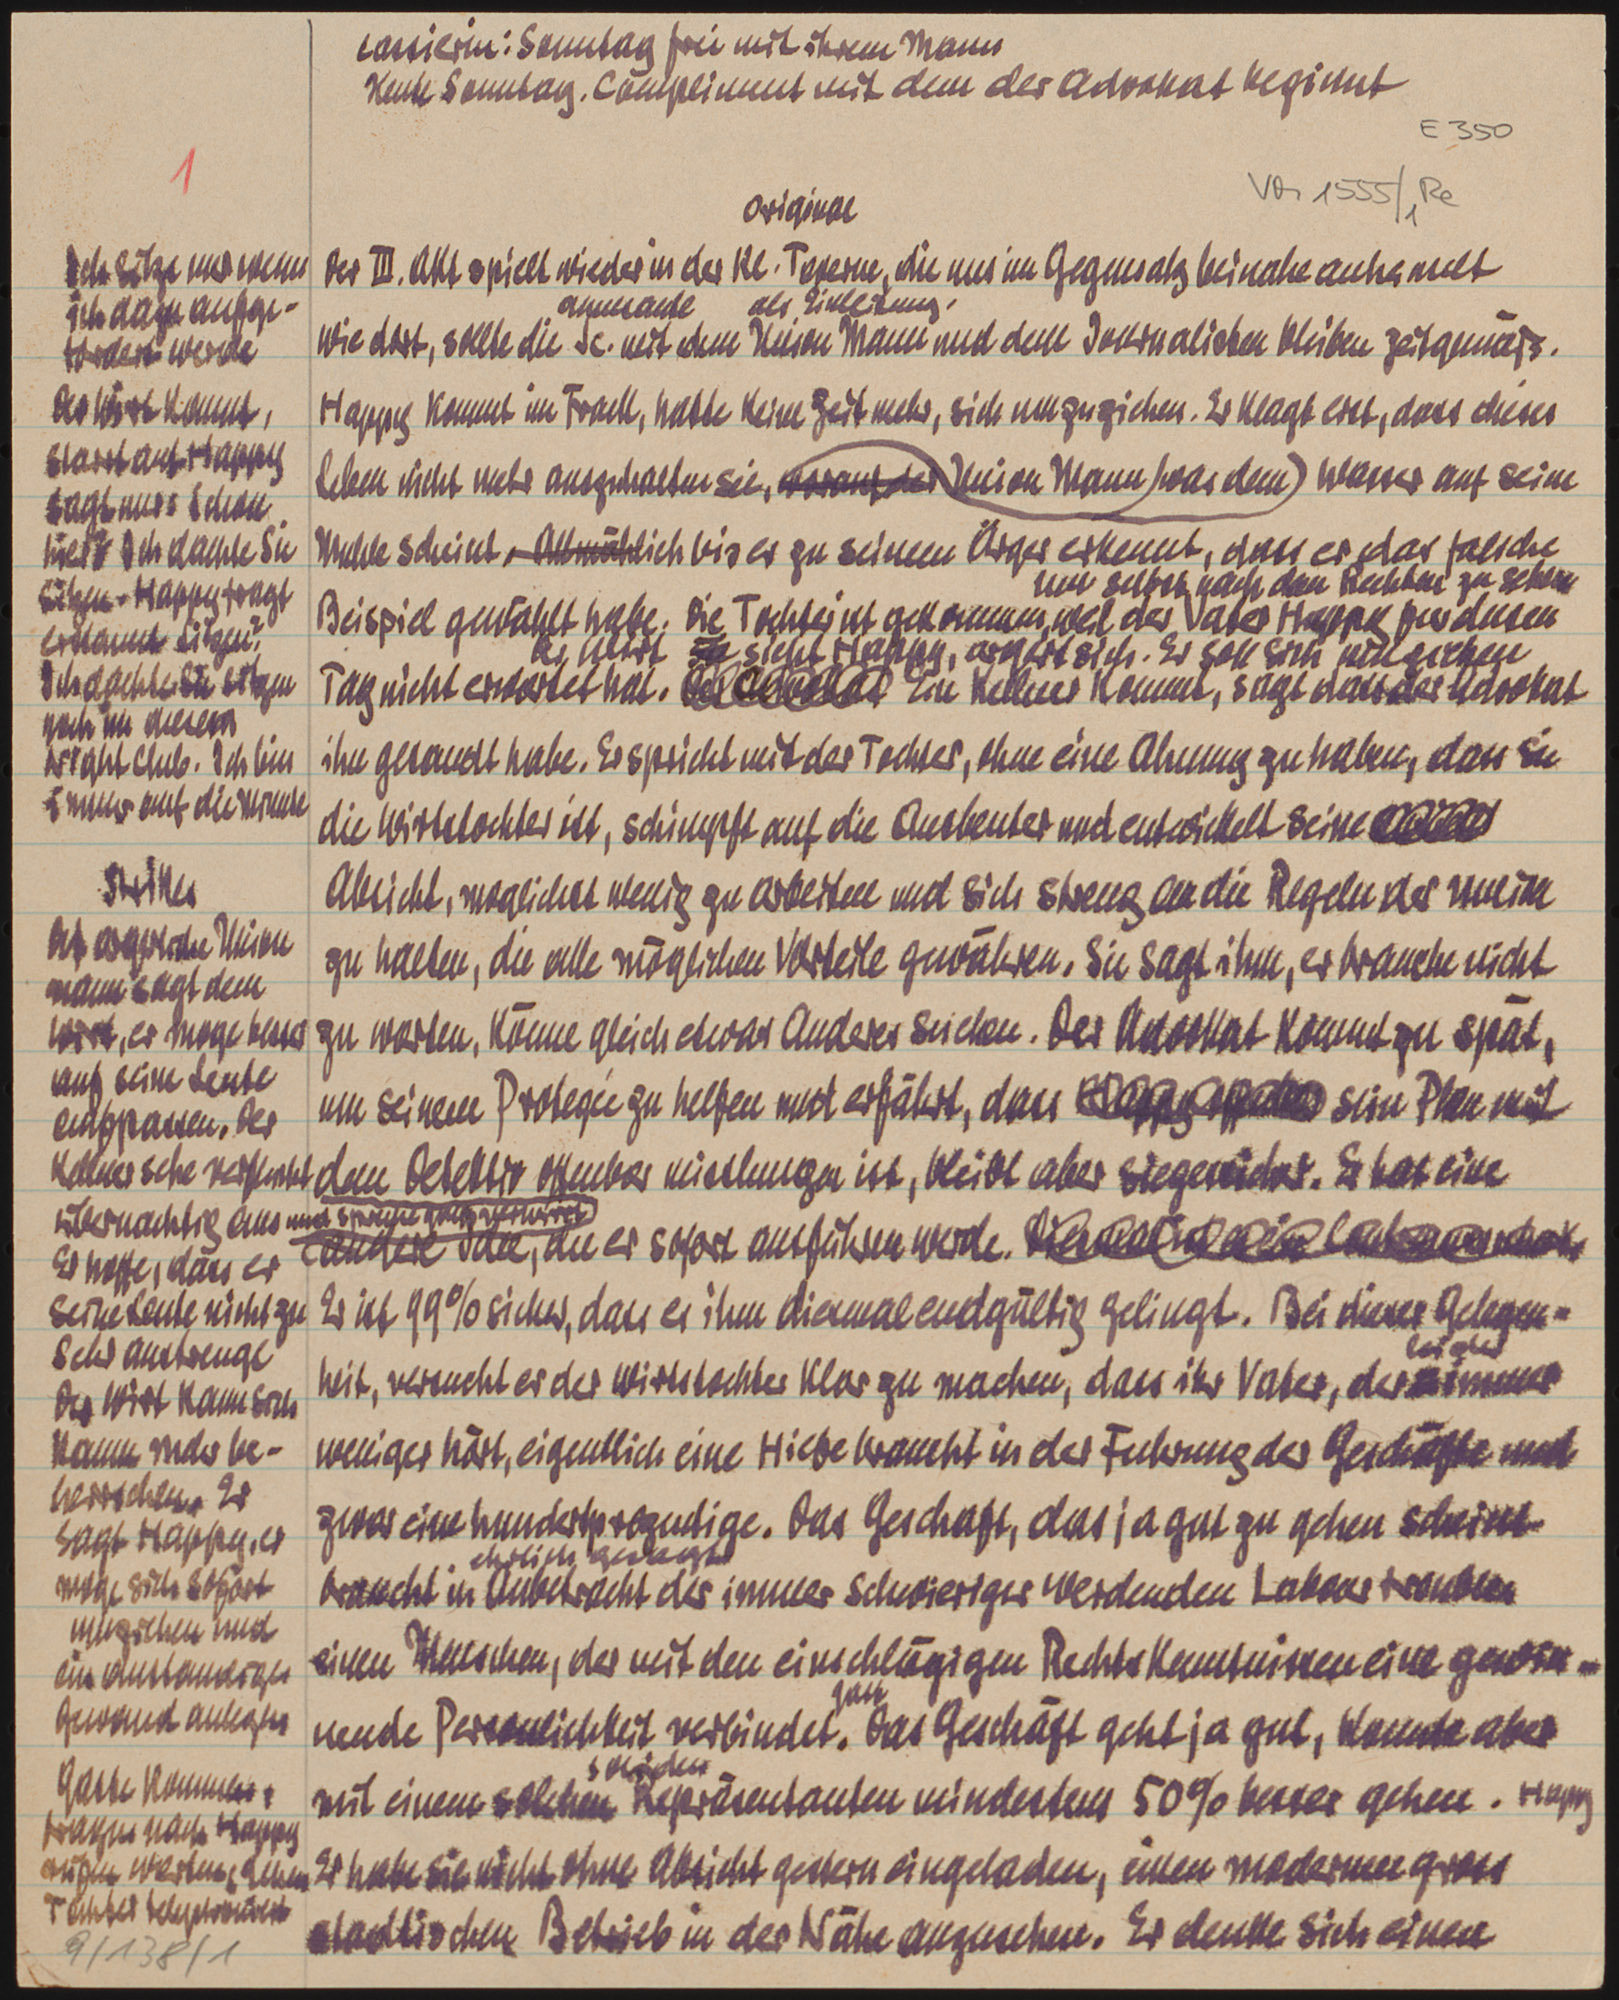 Cassierin: Sonntag frei mit ihrem Mann
Heute Sonntag. Compliment mit dem der Advokat beginnt
E 350
1
1555/1 Re
original
Der III. Akt spielt wieder in der Kl. Taverne, die uns im Gegensatz beinahe anheimelt
als Einleitung.
wie dort, sollte die Sc. mit dem Union Mann und dem Journalisten bleiben zeitgemäss.
Happy kommt im Frack, hatte keine Zeit mehr, sich umzuziehen. Er klagt erst, dass dieses
Leben nicht mehr auszuhalten sei, worauf der Union Mann (was dem) Wasser auf seine
Mühle scheint, Allmählich bis er zu seinem Ärger erkennt, dass er das falsche
um selbst nach dem Rechten zu sehen
Beispiel gewählt habe. Die Tochter ist gekommen, weil der Vater Happy für diesen
Der Wirt sieht Happy, ärgert sich. Er soll sich umziehen
Tag nicht erwartet hat. Der Advokat Ein Kellner kommt, sagt dass der Advokat
ihn gesandt habe. Er spricht mit der Tochter, ohne eine Ahnung zu haben, dass sie
die Wirtstochter ist, schimpft auf die Ausbeuter und entwickelt seine
Absicht, möglichst wenig zu arbeiten und sich streng an die Regeln der Union
zu halten, die alle möglichen Vorteile gewähren. Sie sagt ihm, er brauche nicht
zu warten, könne gleich etwas Anderes suchen. Der Advokat kommt zu spät,
um seinem Protegée zu helfen und erfährt, dass sein Plan mit
dem Detektiv offenbar misslungen ist, bleibt aber siegessicher. Er hat eine
andere Idee, die er sofort ausführen werde.
Er ist 99% sicher, dass es ihm diesmal endgültig gelingt. Bei dieser Gelegen-
leider
heit, versucht er der Wirtstochter klar zu machen, dass ihr Vater, der immer
weniger hört, eigentlich eine Hilfe braucht in der Führung der Geschäfte und
zwar eine hundertprozentige. Das Geschäft, das ja gut zu gehen scheint
ehrlich gesagt
braucht in Anbetracht der immer schwieriger werdenden Labour troubles
einen Menschen, der mit den einschlägigen Rechtskenntnissen eine gewin-
nende Persönlichkeit verbindet. Das Geschäft geht ja gut, könnte aber
soliden
mit einem solchen Repräsentanten mindestens 50% besser gehen. Happy
Er habe sie nicht ohne Absicht gestern eingeladen, einen modernen gross
städtischen Betrieb in der Nähe anzusehen. Er denke sich einen
Ich sitze nur wenn
ich dazu aufge-
fordert werde
Der Wirt kommt,
starrt auf Happy
sagt nur: Schon
hier? Ich dachte Sie
sitzen - Happy fragt
erstaunt sitzen?
Ich dachte Sie sitzen
noch in diesem
Night Club. Ich bin
immer auf die Minute
Strikes
Der ärgerliche Union
mann sagt dem
Wirt, er möge besser
auf seine Leute
aufpassen. Der
Kellner sehe
übernächtig aus
Er hoffe, dass er
seine Leute nicht zu
sehr anstrenge
Der Wirt kann sich
kaum mehr be-
herrschen. Er
sagt Happy, er
möge sich sofort
umziehen und
ein anständiges
Gewand anlegen
Gäste kommen,
fragen nach Happy
Tochter telephoniert
9/138/1